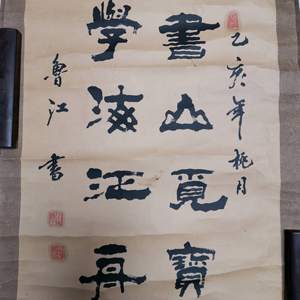 乙亥年桃月
書山覓寶
學海江舟
魯江書